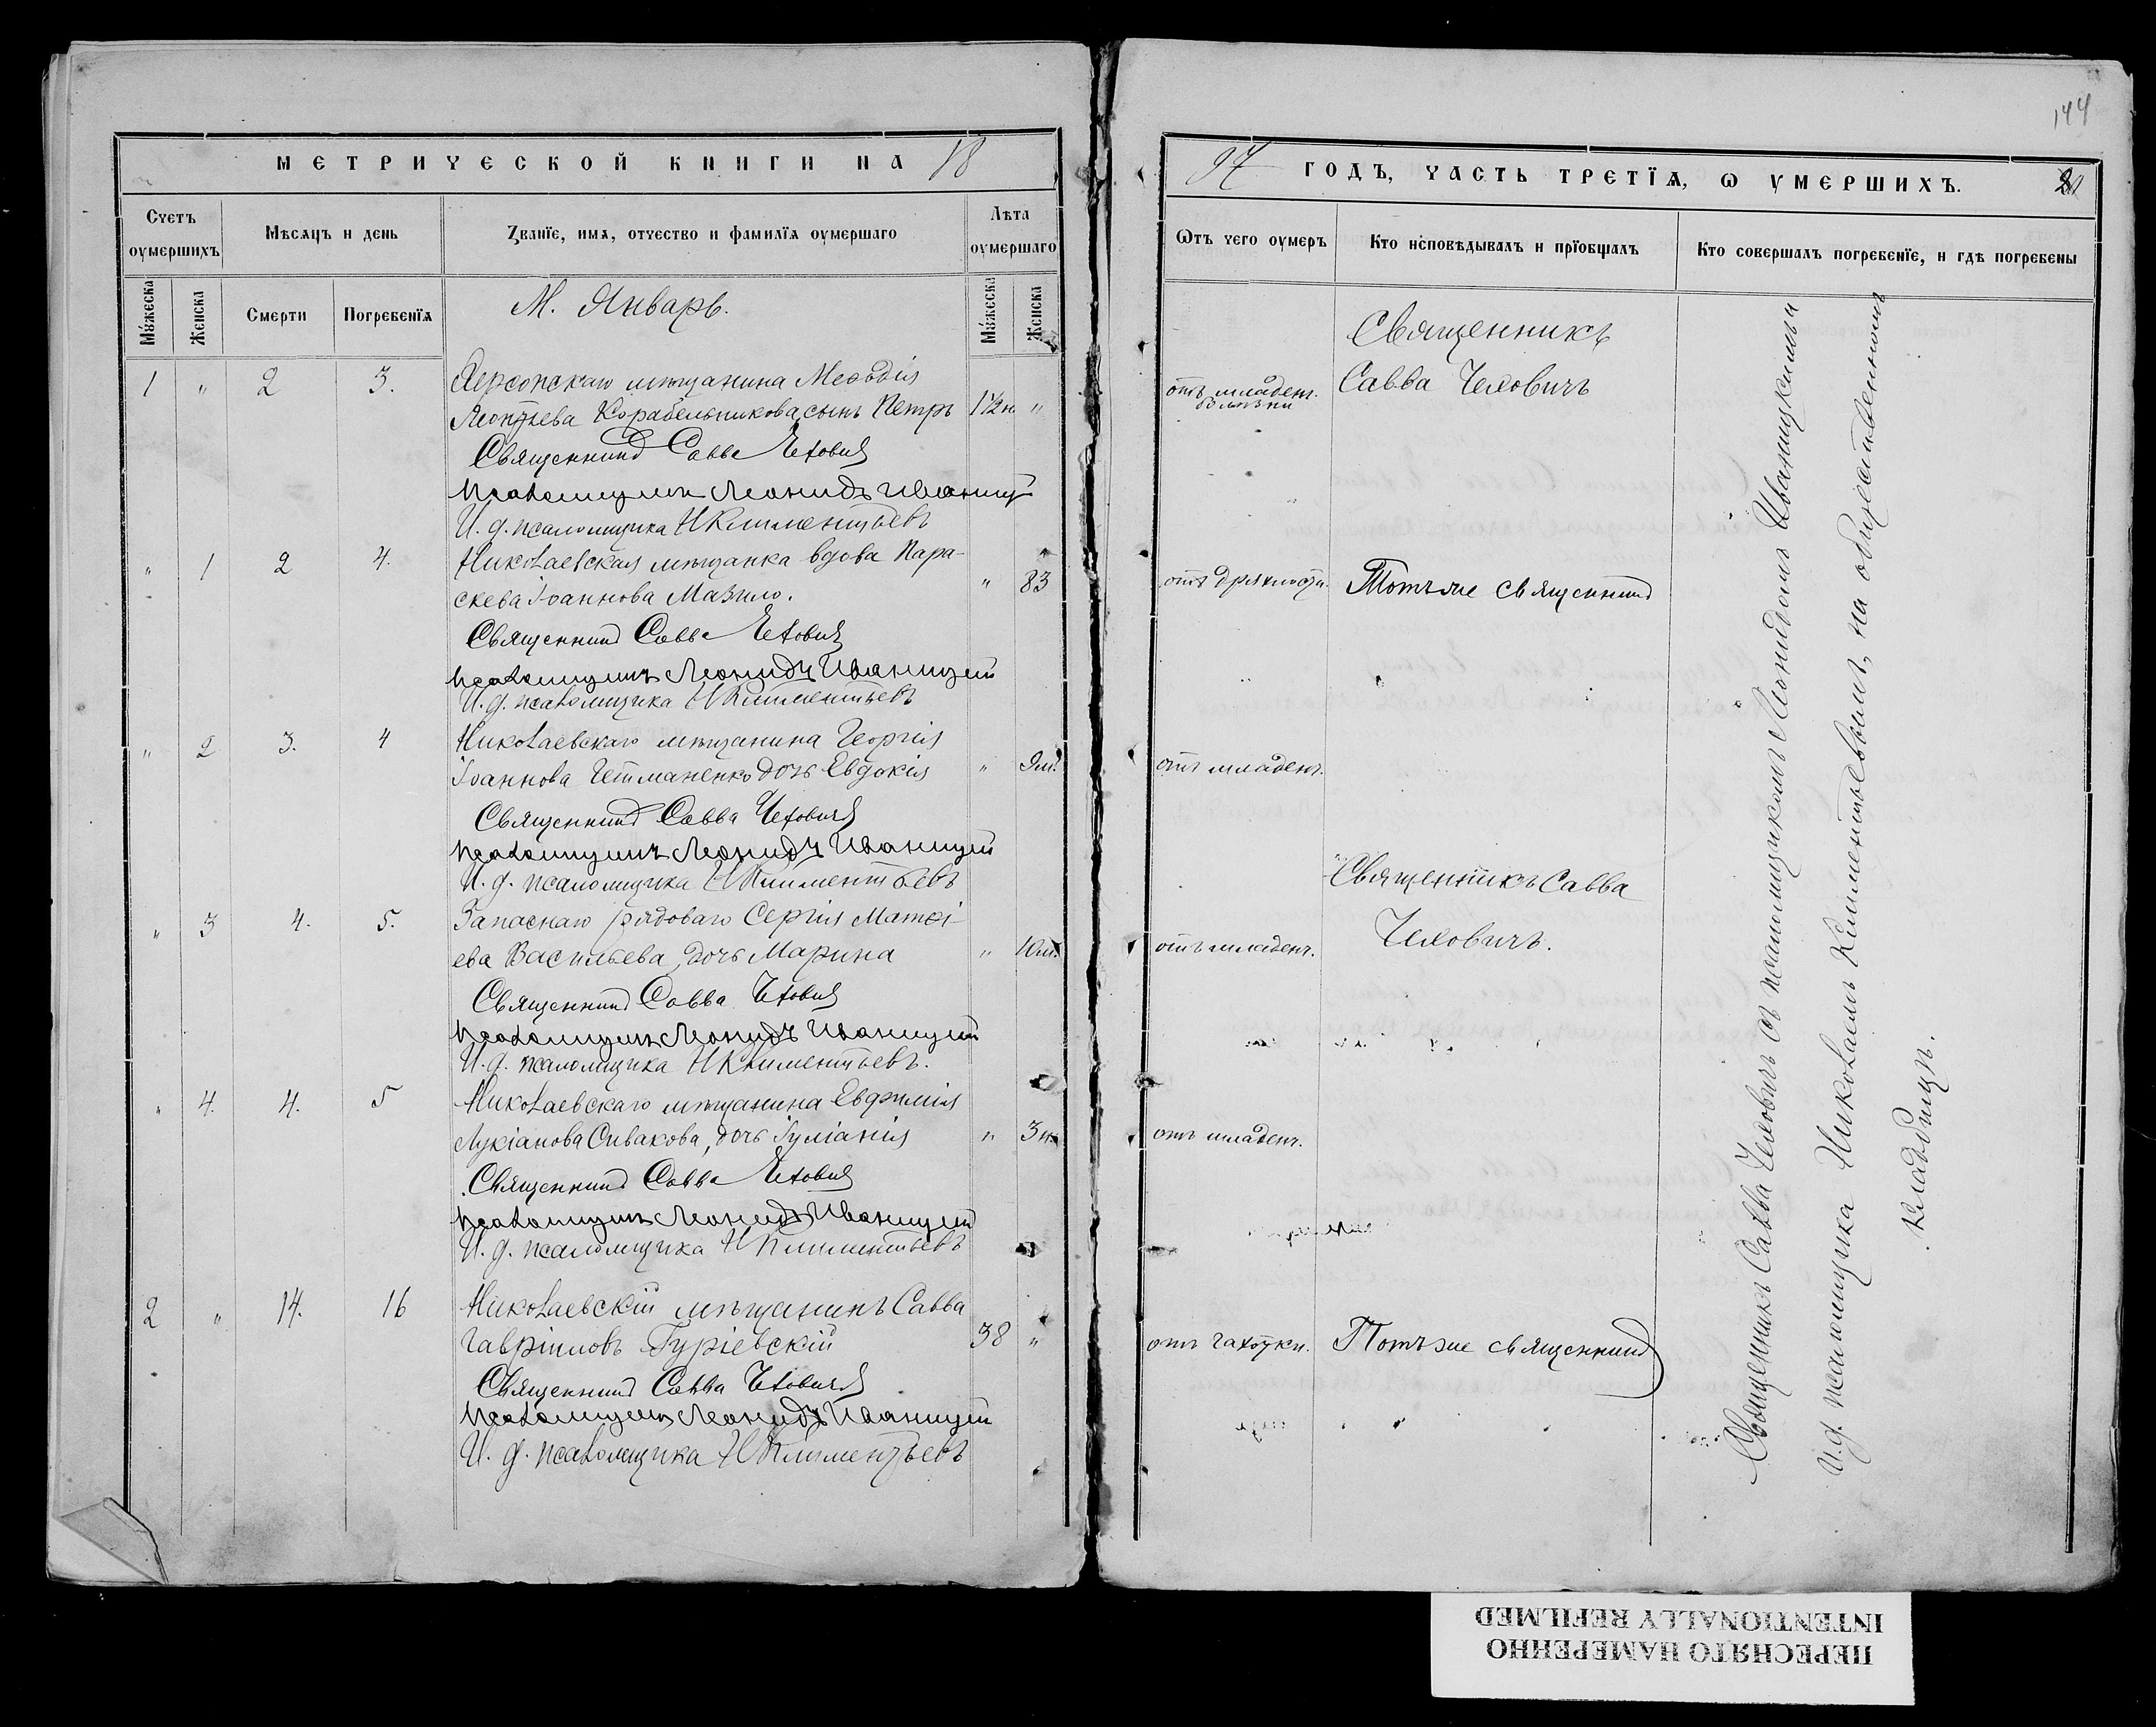 144
МЕТРИЧЕСКОЙ КНИГИ НА 18
97 ГОДЪ, ЧАСТЬ ТРЕТЇѦ, Ѡ УМЕРШИХЪ.
Счетъ оумершихъ
Мѣсяцъ и день
Званїе, имѧ, отчество и фамилїѧ оумершаго
Лѣта оумершаго
Ѿтъ чего оумеръ
Кто исповѣдывалъ и прїобщалъ
Кто совершалъ погребенїе, и гдѣ погребены
Мужеска
Женска
Смерти
Погребенїѧ
М. Январь.
Мужеска
Женска
1 " 2 3. Херсонскаго мѣщанина Меѳодія
Леонтіева Корабельникова, сынъ Петръ 1½ н. "
отъ младен. болѣзни
Священникъ
Савва Чехович
Священникъ Савва Чеховичъ
Псаломщикъ Леонидъ Иваницкій
И. д. псаломщика Н Климентьевъ
" 1 2 4. Николаевская мѣщанка вдова Пара-
скева Іоаннова Мазило. " 83
отъ дряхлости. Тотъ же священникъ
Священникъ Савва Чеховичъ
Псаломщикъ Леонидъ Иваницкій
И. д. псаломщика Н Климентьевъ
" 2 3. 4 Николаевскаго мѣщанина Георгія
Іоаннова Гетманенко дочь Евдокія " 9 м.
отъ младен.
Священникъ Савва Чеховичъ
Псаломщикъ Леонидъ Иваницкій
И. д. псаломщика Н Климентьевъ
" 3 4. 5. Запаснаго рядоваго Сергія Матѳі-
ева Васильева, дочь Марина " 10 м.
отъ младен.
Священникъ Савва
Чеховичъ.
Священникъ Савва Чеховичъ
Псаломщикъ Леонидъ Иваницкій
И. д. псаломщика Н Климентьевъ.
" 4. 4. 5 Николаевскаго мѣщанина Евфимія
Лукіанова Сивакова, дочь Іуліанія " 3 н.
отъ младен.
Священникъ Савва Чеховичъ
Псаломщикъ Леонидъ Иваницкій
И. д. псаломщика Н Климентьевъ
2 " 14. 16 Николаевскій мѣщанинъ Савва
Гавріиловъ Гуріевскій 38 "
отъ чахотки. Тотъ же священникъ
Священникъ Савва Чеховичъ
Псаломщикъ Леонидъ Иваницкій
И. д. псаломщика Н Климентьевъ
Священникъ Савва Чеховичъ съ псаломщикомъ Леонидомъ Иваницкимъ и
и. д. псаломщика Николаемъ Климентьевымъ, на общественномъ
кладбищѣ.
ПЕРЕСНЯТО НАМЕРЕННО
INTENTIONALLY REFILMED